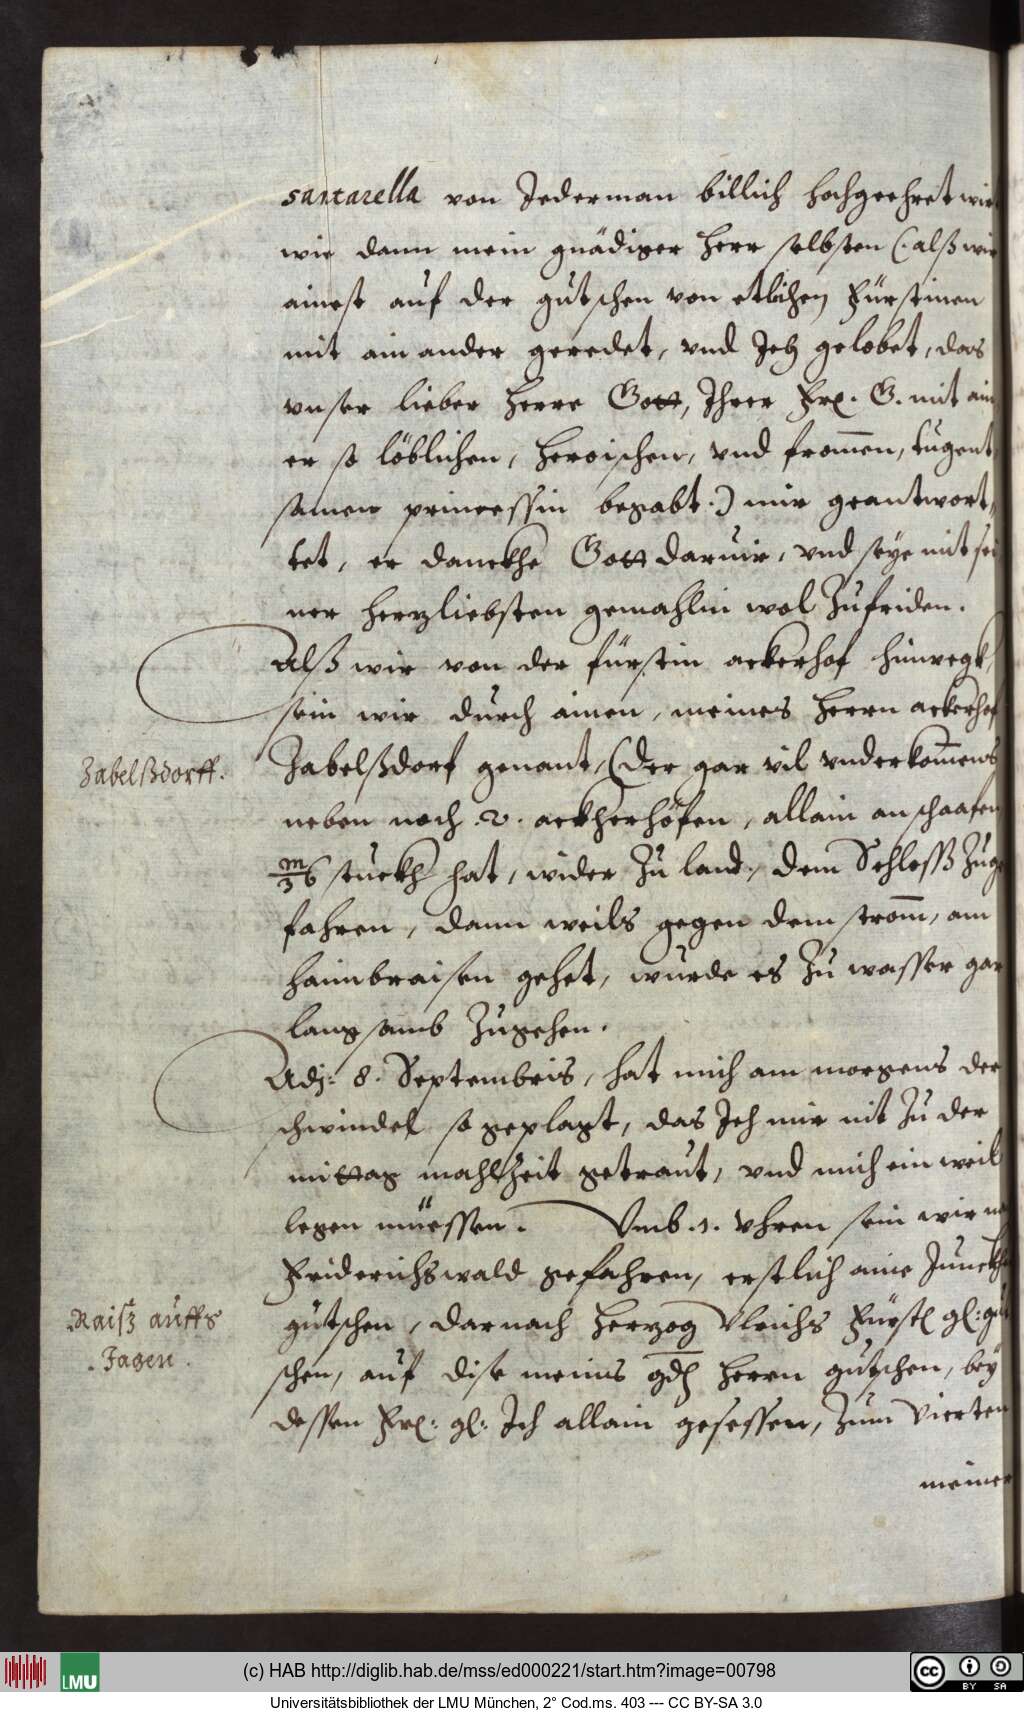 santarella von Jederman billich hochgeehret wirt
wie dann mein gnädiger Herr selbsten (: alß wir
ainest auf der gutschen von etlichen Fürstinen
mit ain ander geredet, vnd Ich gelobet, das
vnser lieber Herre Gott, Ihrer Frl. G. mit ain
er so löblichen, heroischen, vnd from̄en, tugent
samen princessin begabt :) mir geantwort,,
tet, er danckhe Gott daruir, vnd seye mit sei
ner herzliebsten gemahlin wol Zufriden.
Alß wir von der fürstin ackerhof hinwegk,
sein wir durch ainen, meines Herrn ackerhof
Zabelßdorff.
Zabelßdorf genant, (der gar vil vnderkom̄ens
neben noch .2. ackherhöfen, allain an schaafen
m/36 stuckh hat, wider Zu land, dem Schloß Zuge
fahren, dann weils gegen dem strom̄, am
haimbraisen gehet, wurde es Zu wasser gar
langsamb Zugehen.
Adj: 8. Septembris, hat mich am morgens der
schwindel so geplagt, das Ich mir nit Zu der
mittag mahlZeit getraut, vnd mich ein weil
legen müessen. Vmb .1. vhren sein wir
Friderichswald gefahren, erstlich aine Junckh
Raiß auffs
Jagen.
gutschen, darnach Herzog Vlrichs Fürstl gl: gut
schen, auf dise meins gdl Herrn gutschen, bey
dessen Frl: gl: Ich allain gesessen, Zum Vierten
meiner
(c) HAB http://diglib.hab.de/mss/ed000221/start.htm?image=00798
LMU
cc BY SA
Universitätsbibliothek der LMU München, 2° Cod.ms. 403 --- CC BY-SA 3.0